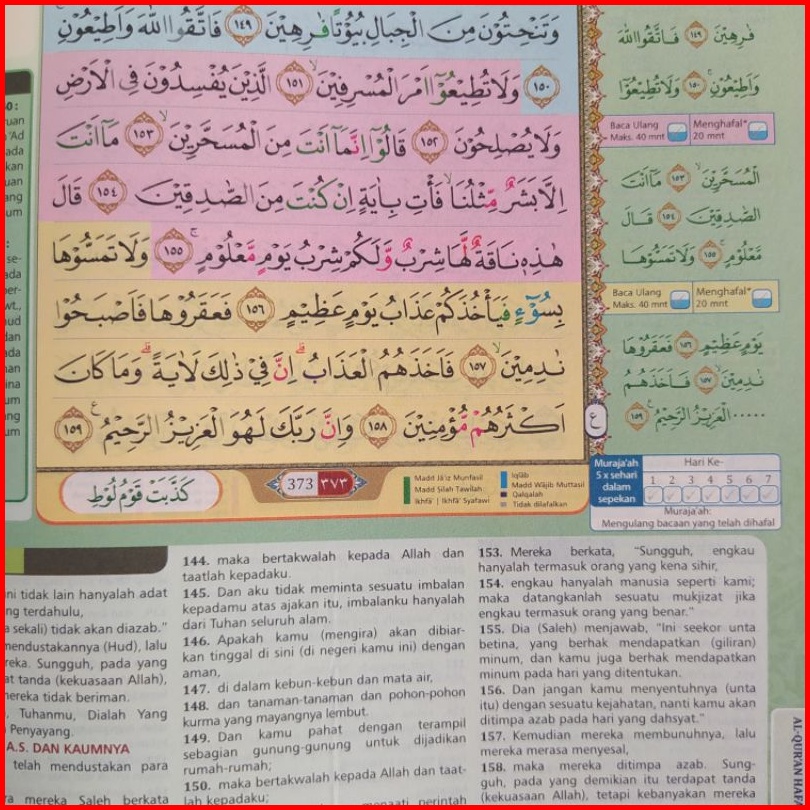 وَتَنْحِتُوْنَ مِنَ الْجِبَالِ بُيُوْتًا فٰرِهِيْنَ ١٤٩ فَاتَّقُوا اللّٰهَ وَاَطِيْعُوْنِ
١٥٠ وَلَا تُطِيْعُوْٓا اَمْرَ الْمُسْرِفِيْنَ ١٥١ الَّذِيْنَ يُفْسِدُوْنَ فِى الْاَرْضِ
وَلَا يُصْلِحُوْنَ ١٥٢ قَالُوْٓا اِنَّمَآ اَنْتَ مِنَ الْمُسَحَّرِيْنَ ١٥٣ مَآ اَنْتَ
اِلَّا بَشَرٌ مِّثْلُنَا فَأْتِ بِاٰيَةٍ اِنْ كُنْتَ مِنَ الصّٰدِقِيْنَ ١٥٤ قَالَ
هٰذِهٖ نَاقَةٌ لَّهَا شِرْبٌ وَّلَكُمْ شِرْبُ يَوْمٍ مَّعْلُوْمٍ ١٥٥ وَلَا تَمَسُّوْهَا
بِسُوْۤءٍ فَيَأْخُذَكُمْ عَذَابُ يَوْمٍ عَظِيْمٍ ١٥٦ فَعَقَرُوْهَا فَاَصْبَحُوْا
نٰدِمِيْنَ ١٥٧ فَاَخَذَهُمُ الْعَذَابُ اِنَّ فِيْ ذٰلِكَ لَاٰيَةً وَمَا كَانَ
اَكْثَرُهُمْ مُّؤْمِنِيْنَ ١٥٨ وَاِنَّ رَبَّكَ لَهُوَ الْعَزِيْزُ الرَّحِيْمُ ١٥٩
فٰرِهِيْنَ ١٤٩ فَاتَّقُوا اللّٰهَ
وَاَطِيْعُوْنِ ١٥٠ وَلَا تُطِيْعُوْٓا
Baca Ulang Maks. 40 mnt
Menghafal* 20 mnt
الْمُسَحَّرِيْنَ ١٥٣ مَآ اَنْتَ
الصّٰدِقِيْنَ ١٥٤ قَالَ
مَّعْلُوْمٍ ١٥٥ وَلَا تَمَسُّوْهَا
Baca Ulang Maks. 40 mnt
Menghafal* 20 mnt
يَوْمٍ عَظِيْمٍ ١٥٦ فَعَقَرُوْهَا
نٰدِمِيْنَ ١٥٧ فَاَخَذَهُمُ
..... الْعَزِيْزُ الرَّحِيْمُ ١٥٩
ع
كَذَّبَتْ قَوْمُ لُوْطٍ
373 ٣٧٣
Madd Jā'iz Munfasil
Madd Silah Tawilah
Ikhfā' | Ikhfā' Syafawi
Iqlāb
Madd Wājib Muttasil
Qalqalah
Tidak dilafalkan
Muraja'ah
5 x sehari
dalam
sepekan
Hari Ke-
1 2 3 4 5 6 7
Muraja'ah:
Mengulang bacaan yang telah dihafal
ni tidak lain hanyalah adat
ng terdahulu,
a sekali) tidak akan diazab."
mendustakannya (Hud), lalu
reka. Sungguh, pada yang
at tanda (kekuasaan Allah),
mereka tidak beriman.
, Tuhanmu, Dialah Yang
Penyayang.
A.S. DAN KAUMNYA
telah mendustakan para
a mereka Saleh berkata
144. maka bertakwalah kepada Allah dan
taatlah kepadaku.
145. Dan aku tidak meminta sesuatu imbalan
kepadamu atas ajakan itu, imbalanku hanyalah
dari Tuhan seluruh alam.
146. Apakah kamu (mengira) akan dibiar-
kan tinggal di sini (di negeri kamu ini) dengan
aman,
147. di dalam kebun-kebun dan mata air,
148. dan tanaman-tanaman dan pohon-pohon
kurma yang mayangnya lembut.
149. Dan kamu pahat dengan terampil
sebagian gunung-gunung untuk dijadikan
rumah-rumah;
150. maka bertakwalah kepada Allah dan taat-
lah kepadaku;
menaati perintah
153. Mereka berkata, "Sungguh, engkau
hanyalah termasuk orang yang kena sihir,
154. engkau hanyalah manusia seperti kami;
maka datangkanlah sesuatu mukjizat jika
engkau termasuk orang yang benar."
155. Dia (Saleh) menjawab, "Ini seekor unta
betina, yang berhak mendapatkan (giliran)
minum, dan kamu juga berhak mendapatkan
minum pada hari yang ditentukan.
156. Dan jangan kamu menyentuhnya (unta
itu) dengan sesuatu kejahatan, nanti kamu akan
ditimpa azab pada hari yang dahsyat."
157. Kemudian mereka membunuhnya, lalu
mereka merasa menyesal,
158. maka mereka ditimpa azab. Sung-
guh, pada yang demikian itu terdapat tanda
(kekuasaan Allah), tetapi kebanyakan mereka
AL-QUR'AN HAF